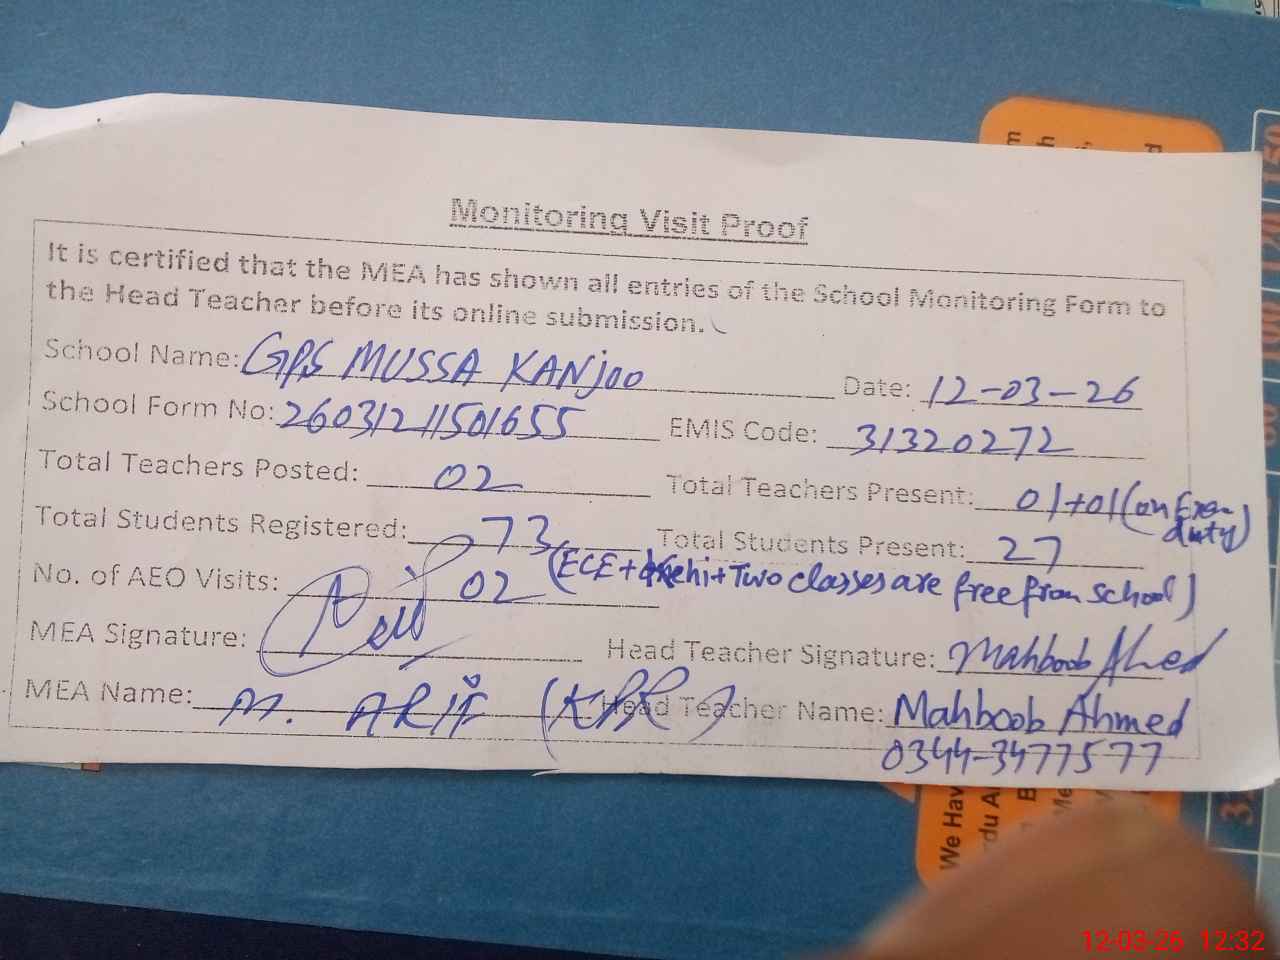 Monitoring Visit Proof
It is certified that the MEA has shown all entries of the School Monitoring Form to
the Head Teacher before its online submission.
School Name: GPS MUSSA KANJOO Date: 12-03-26
School Form No: 26031211501655 EMIS Code: 31320272
Total Teachers Posted: 02 Total Teachers Present: 01+01 (on Exam duty)
Total Students Registered: 73 Total Students Present: 27
(ECE+ +Two classes are free from school)
No. of AEO Visits: 02
MEA Signature: Head Teacher Signature: Mahboob Ahmed
MEA Name: M. ARIF Head Teacher Name: Mahboob Ahmed
0344-3477577
We Hav
12-03-26 12:32